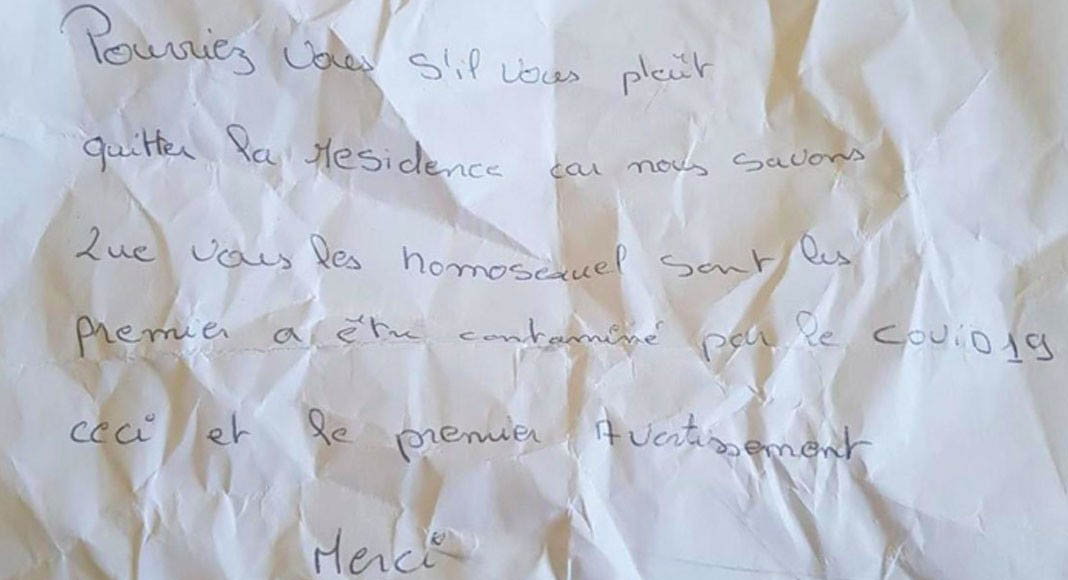 Pourriez vous s'il vous plaît
quitter la residence car nous savons
Que vous les homosexuel sont les
premier a être contaminé par le COViD19
ceci et le premier Avertissement
Merci